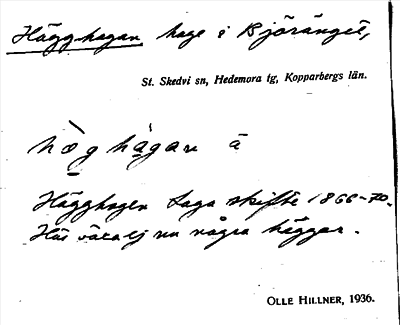 Hägghagan hage i Björänget,
St. Skedvi sn, Hedemora tg, Kopparbergs län.
hæ̀ghágan ä
Hägghagen Laga skifte 1866-70.
Här växa ej nu några häggar.
OLLE HILLNER, 1936.